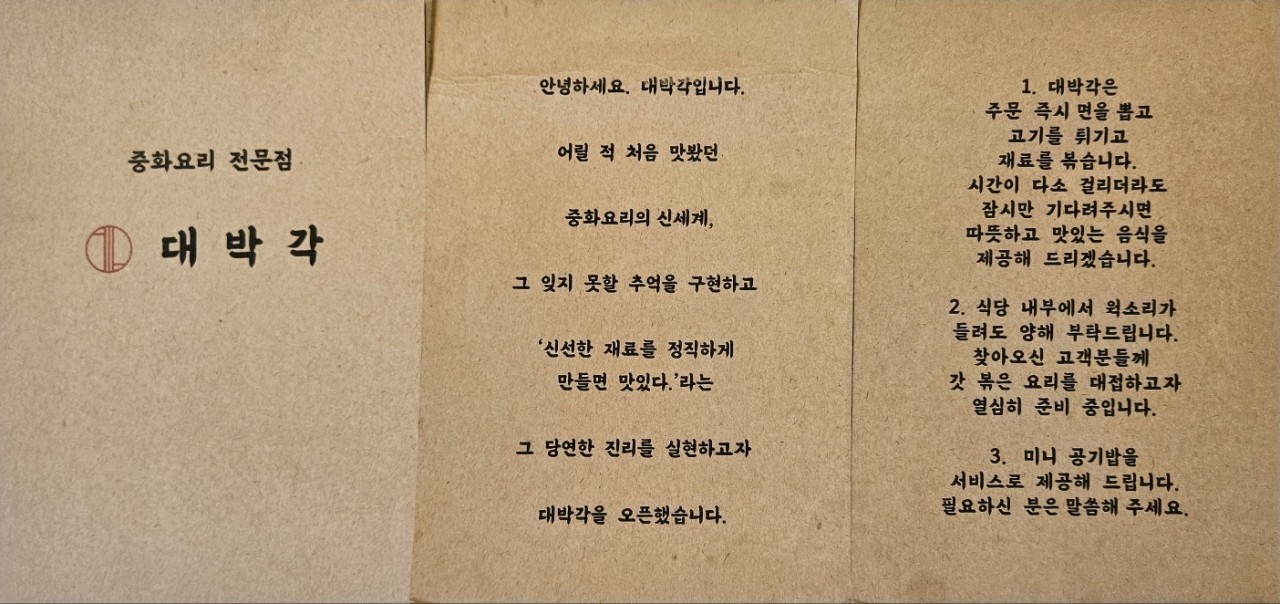 중화요리 전문점
대 박 각
안녕하세요. 대박각입니다.
어릴 적 처음 맛봤던
중화요리의 신세계,
그 잊지 못할 추억을 구현하고
‘신선한 재료를 정직하게
만들면 맛있다.’라는
그 당연한 진리를 실현하고자
대박각을 오픈했습니다.
1. 대박각은
주문 즉시 면을 뽑고
고기를 튀기고
재료를 볶습니다.
시간이 다소 걸리더라도
잠시만 기다려주시면
따뜻하고 맛있는 음식을
제공해 드리겠습니다.
2. 식당 내부에서 웍소리가
들려도 양해 부탁드립니다.
찾아오신 고객분들께
갓 볶은 요리를 대접하고자
열심히 준비 중입니다.
3. 미니 공기밥을
서비스로 제공해 드립니다.
필요하신 분은 말씀해 주세요.